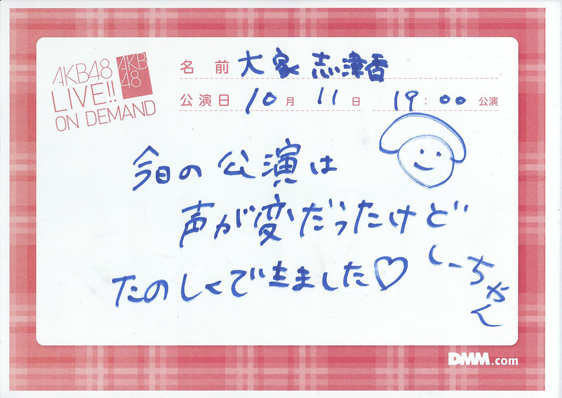 AKB48
LIVE!!
ON DEMAND
AKB
48
名前 大家 志津香
公演日 10月 11日 19:00 公演
今日の公演は
声が変だったけど
たのしくできました♡
しーちゃん
DMM.com